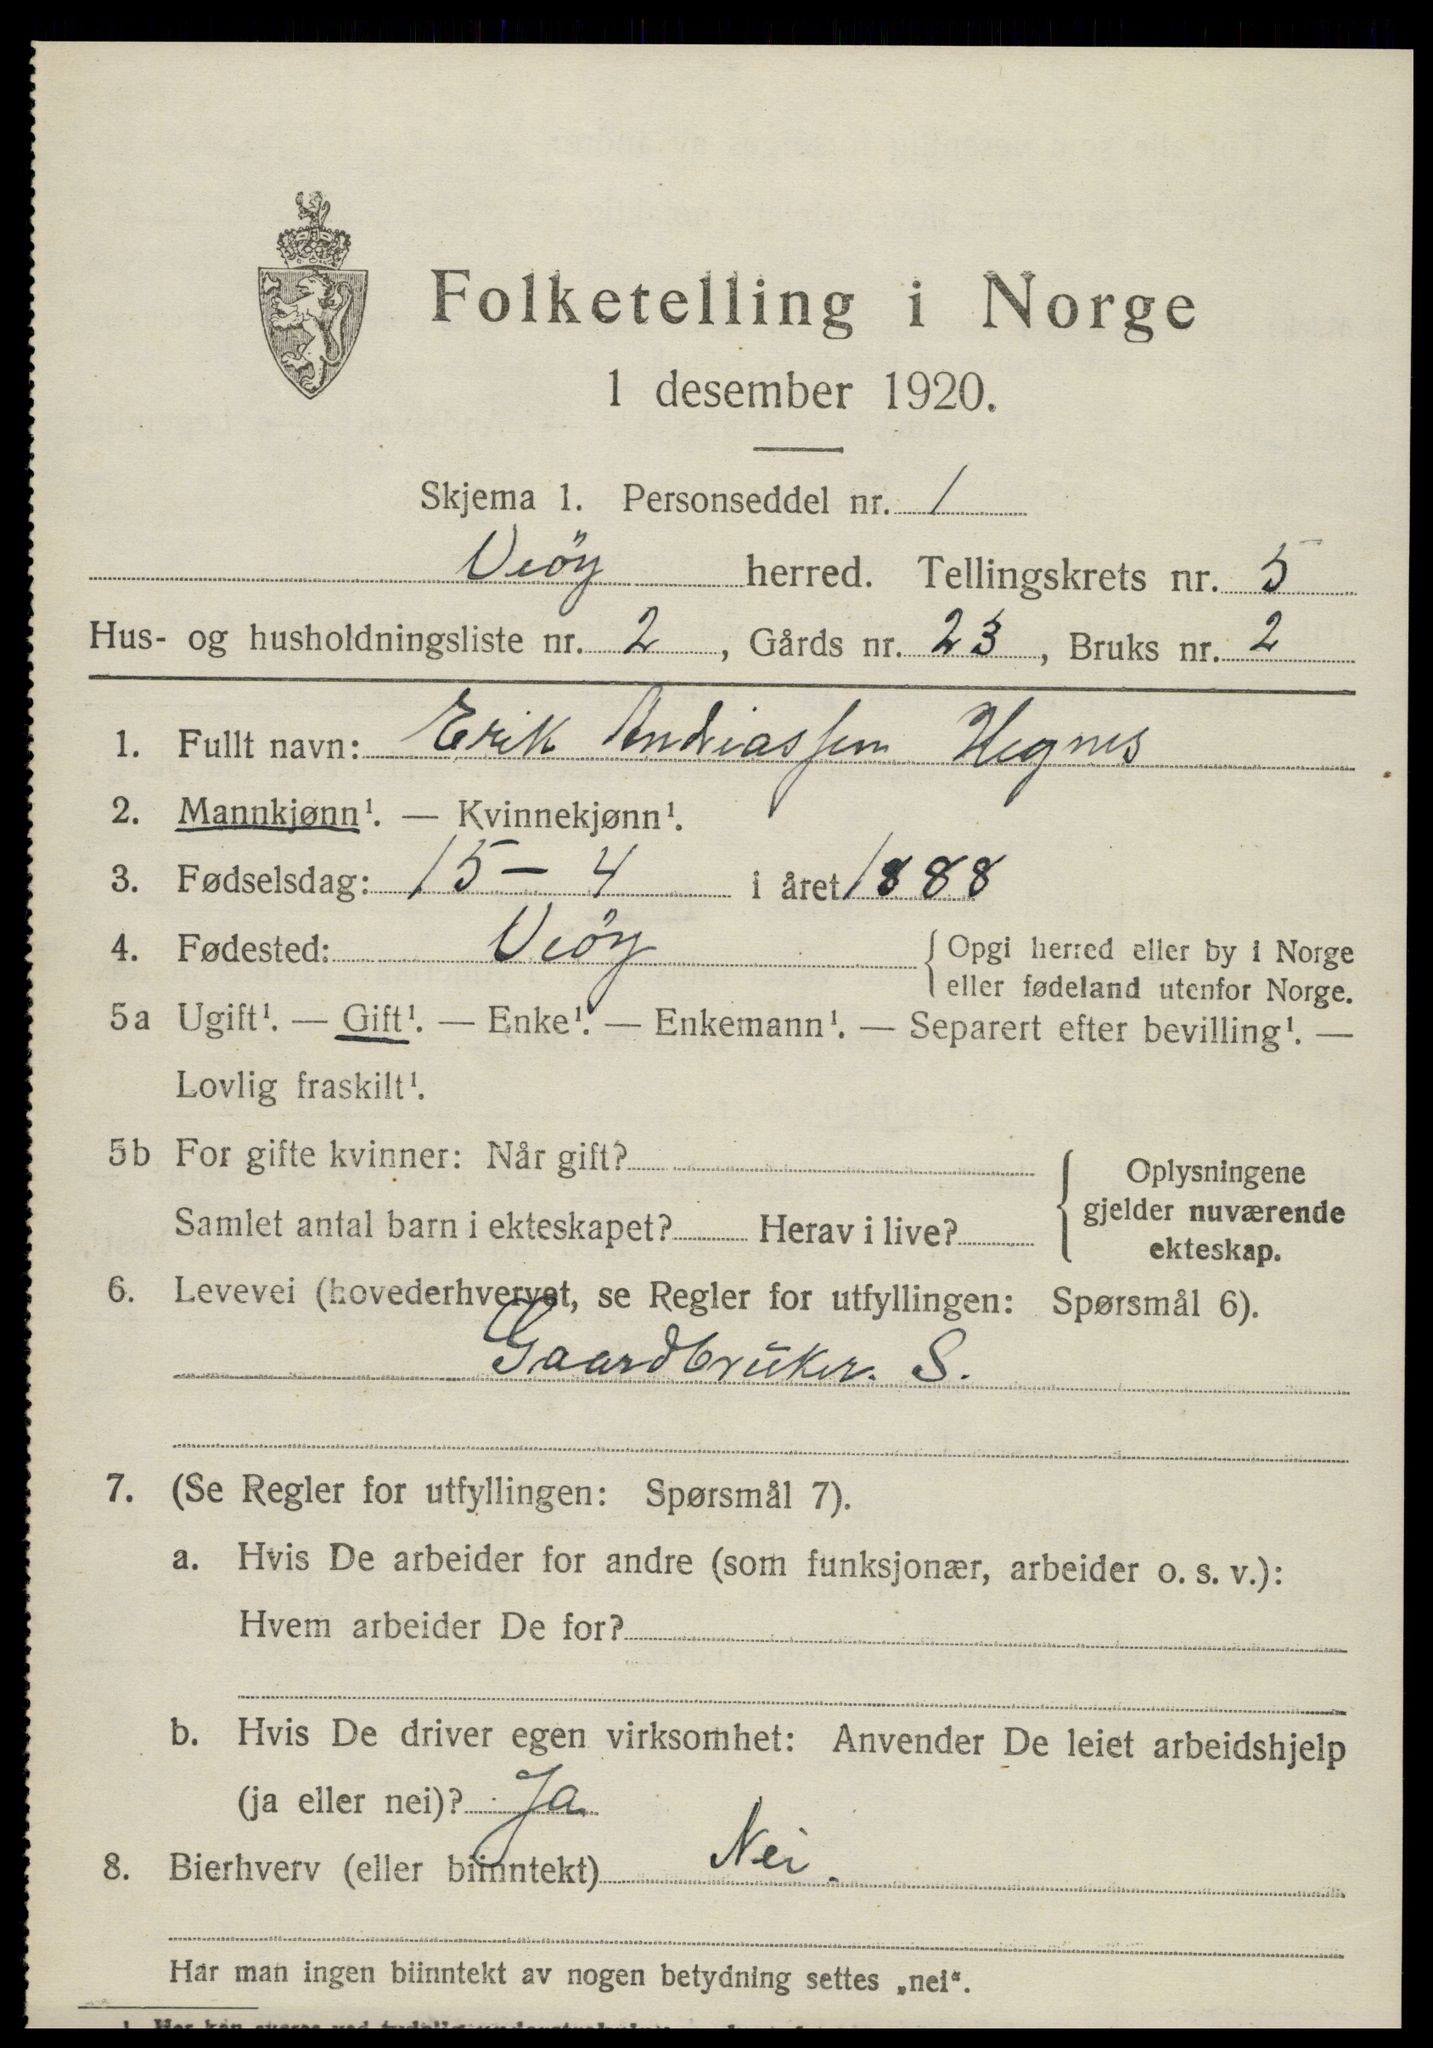 Folketelling i Norge
1 desember 1920.
Skjema 1. Personseddel nr. 1
Veöy herred. Tellingskrets nr. 5
Hus- og husholdningsliste nr. 2, Gårds nr. 23, Bruks nr. 2
1. Fullt navn: Erik Andreassen Hegnes
2. Mannkjønn¹. — Kvinnekjønn¹.
3. Fødselsdag: 15-4 i året 1888
4. Fødested: Veöy { Opgi herred eller by i Norge
eller fødeland utenfor Norge.
5a Ugift¹. — Gift¹. — Enke¹. — Enkemann¹. — Separert efter bevilling¹. —
Lovlig fraskilt¹.
5b For gifte kvinner: Når gift?
Samlet antal barn i ekteskapet? Herav i live?
{ Oplysningene
gjelder nuværende
ekteskap.
6. Levevei (hovederhvervet, se Regler for utfyllingen: Spørsmål 6).
Gaardbruker. S.
7. (Se Regler for utfyllingen: Spørsmål 7).
a. Hvis De arbeider for andre (som funksjonær, arbeider o. s. v.):
Hvem arbeider De for?
b. Hvis De driver egen virksomhet: Anvender De leiet arbeidshjelp
(ja eller nei)? Ja
8. Bierhverv (eller biinntekt) Nei.
Har man ingen biinntekt av nogen betydning settes „nei".